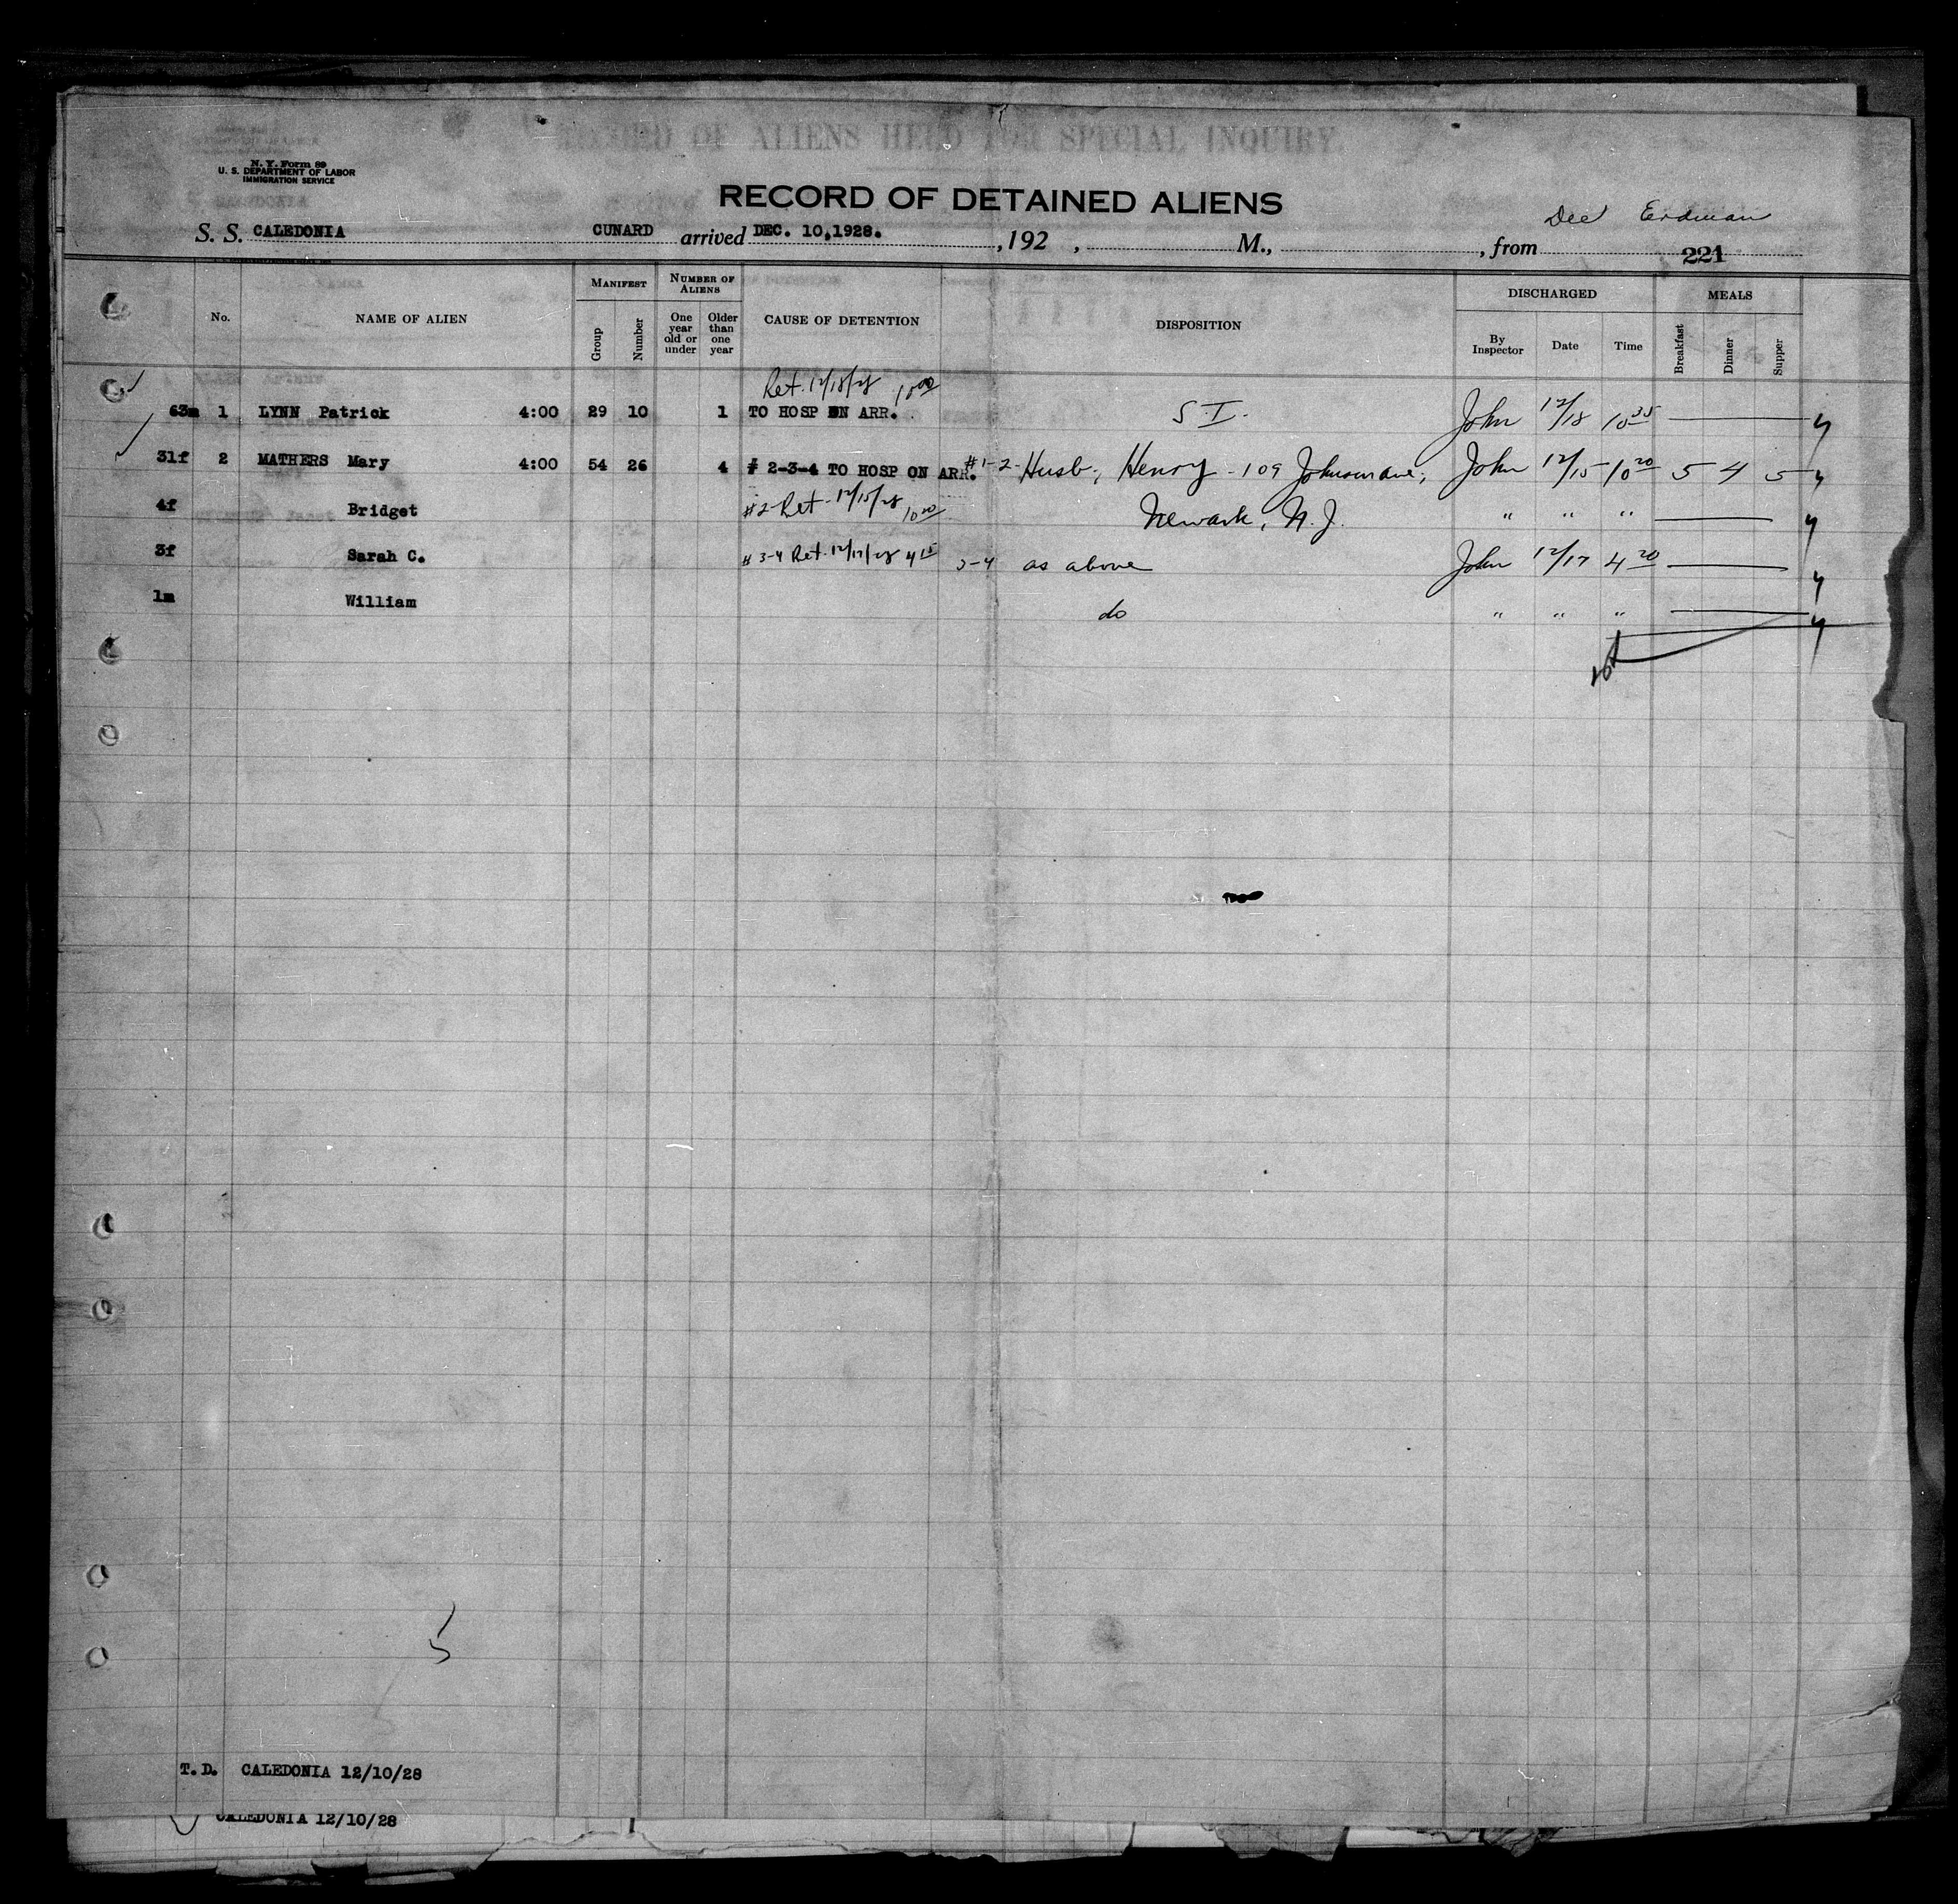 RECORD OF ALIENS HELD FOR SPECIAL INQUIRY.
N. Y. Form 89
U. S. DEPARTMENT OF LABOR
IMMIGRATION SERVICE
RECORD OF DETAINED ALIENS
Dee Erdman
S. S. CALEDONIA CUNARD arrived DEC. 10,1928. , 192 , M., , from 221
No. NAME OF ALIEN MANIFEST Group Number NUMBER OF ALIENS One year old or under Older than one year CAUSE OF DETENTION DISPOSITION DISCHARGED By Inspector Date Time MEALS Breakfast Dinner Supper
Ret. 12/18/28 10 00
63m 1 LYNN Patrick 4:00 29 10 1 TO HOSP ON ARR. S. I. John 12/18 10 35
31f 2 MATHERS Mary 4:00 54 26 4 # 2-3-4 TO HOSP ON ARR. #1-2- Husb, Henry - 109 Johnson ave, John 12/15 10 20 5 4 5
4f Bridget #2 Ret. 12/15/28 10 00 Newark, N. J. " " "
3f Sarah C. # 3-4 Ret. 12/17/28 4 15 3-4 as above John 12/17 4 20
1m William do " " "
5
T. D. CALEDONIA 12/10/28
CALEDONIA 12/10/28